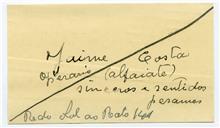 Jaime Costa
Operario (alfaiate)
sinceros e sentidos
pesames
Rua do Sol ao Rato